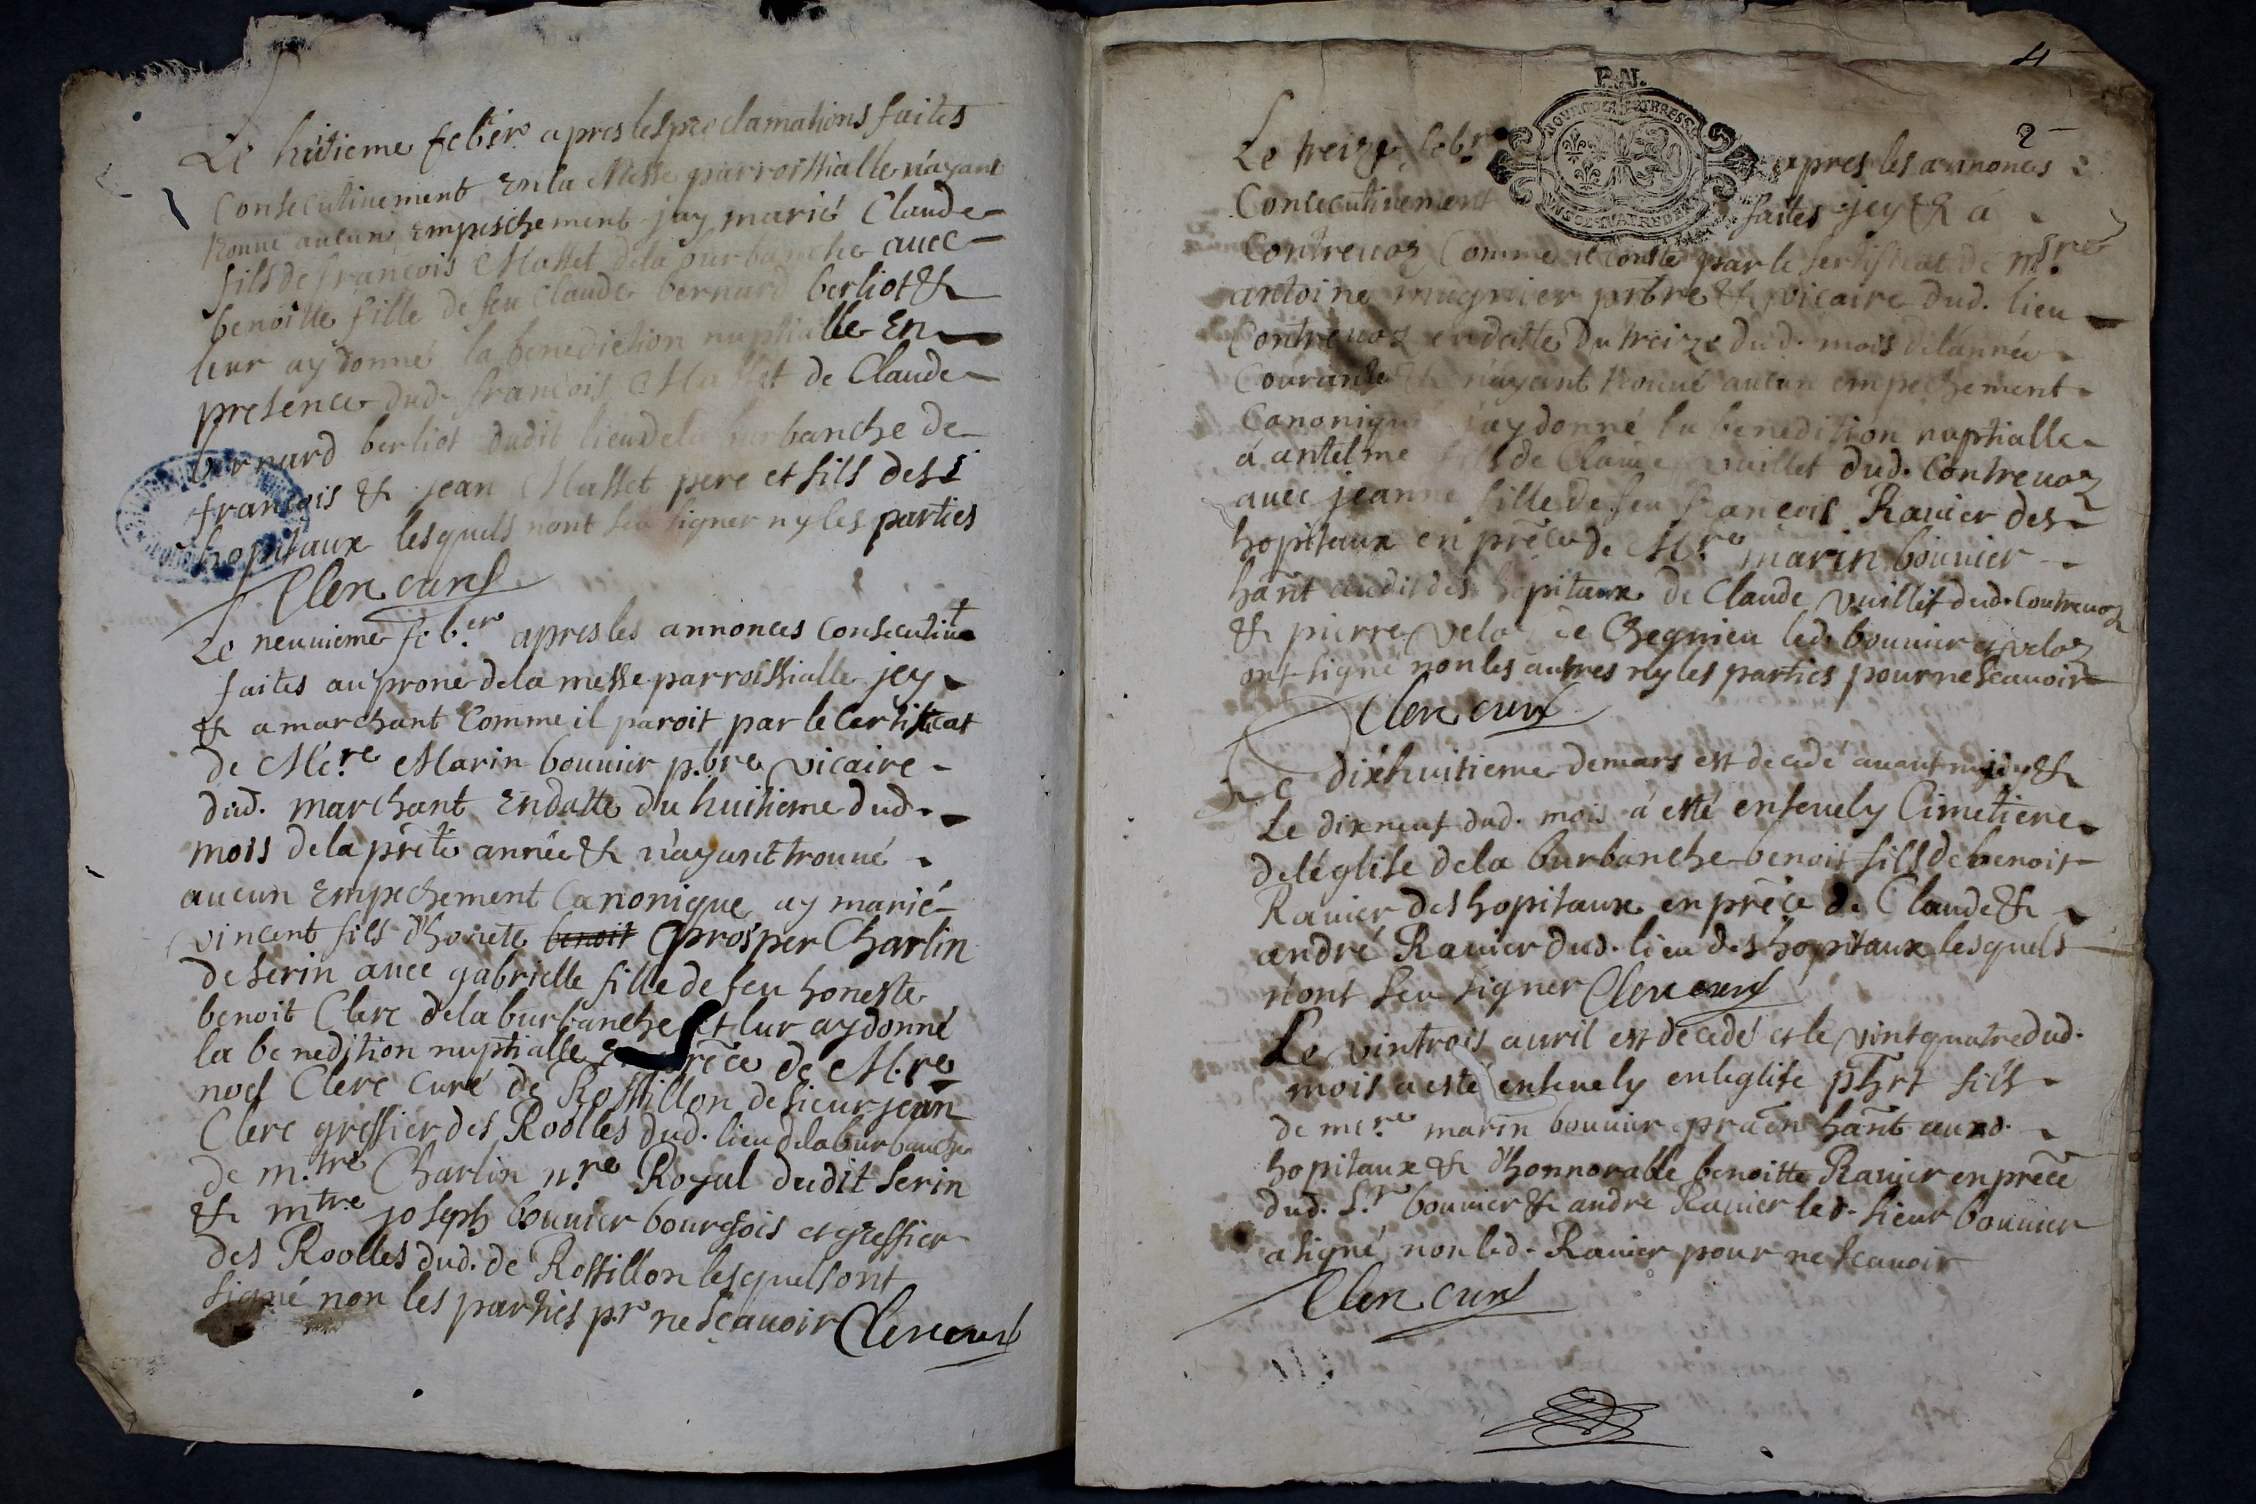 Le huitieme feb.er apres les proclamations faites
Consecutivement En la Messe parroissialle n'ayant
trouve aucuns empeschement jay marié Claude
fils de françois Masset de la burbanche avec
benoitte fille de feu Claude bernard berliot &
leur ay donné la benediction nuptialle En
presence dud. françois Masset de Claude
bernard berliot dudit lieu de la burbanche de
françois & jean Masset pere et fils des
hopitaux lesquels nont sceu signer ny les parties
Clerc curé
Le neuvieme feb.er apres les annonces consecutive.t
faites au prone de la messe parroissialle jcy
& a marchant Comme il paroit par le Certificat
de Me.re Marin bouvier p.bre vicaire
dud. marchant En datte du huitieme dud.
mois de la pñte année & n'ayant trouvé
aucun Empechement Canonique ay marié
vincent fils d'honete benoit prosper Charlin
de serin avec gabrielle fille de feu honeste
benoit Clerc de la burbanche et lur ay donné
la benedition nuptialle en prẽce de M.re
noel Clerc curé de Rossillon de sieur jean
Clerc greffier des Roolles dud. lieu de la burbanche
de m.tre Charlin n.re Royal dudit serin
& mtre joseph bouvier bourgois et greffier
des Roolles dud. de Rossillon lesquels ont
signé non les parties p.r ne sçavoir Clerc curé
4
2
P.N.
Le treize feb.r apres les annonces
Concecutivement faites jcy & a
Contrevoz Comme il conste par le sertificat de M.sre
antoine mugnier prbre & vicaire dud. lieu
Contrevoz en datte du treize dud. mois de l'année
Courante & n'ayant trouvé aucun empechement
Canonique j'ay donné la benedition nuptialle
á antelme fils de Claude vuillet dud. Contrevoz
avec jeanne fille de feu françois Ravier des
hopitaux en prẽce de M.re marin bouvier
hãnt audit des hopitaux de Claude vuillet dud. Contrevoz
& pierre veloz de Chegnieu led. bouvier & veloz
ont signé non les autres ny les parties pour ne sçavoir
Clerc curé
Le dixhuitieme de mars est decedé avant midy &
Le dixneuf dud. mois á esté ensevely Cimetiere
de l'église de la burbanche benoit fils de benoit
Ravier des hopitaux en prẽce de Claude &
andré Ravier dud. lieu des hopitaux lesquels
n'ont sceu signer Clerc curé
Le vintrois avril est decedé et le vintquatre dud.
mois a esté ensevely en l'eglise phrt fils
de me.re marin bouvier hãnt auxd.
hopitaux & d'honnorable benoitte Ravier en prẽce
dud. S.r bouvier & andre Ravier led. sieur bouvier
a signé non led. Ravier pour ne sçavoir
Clerc curé